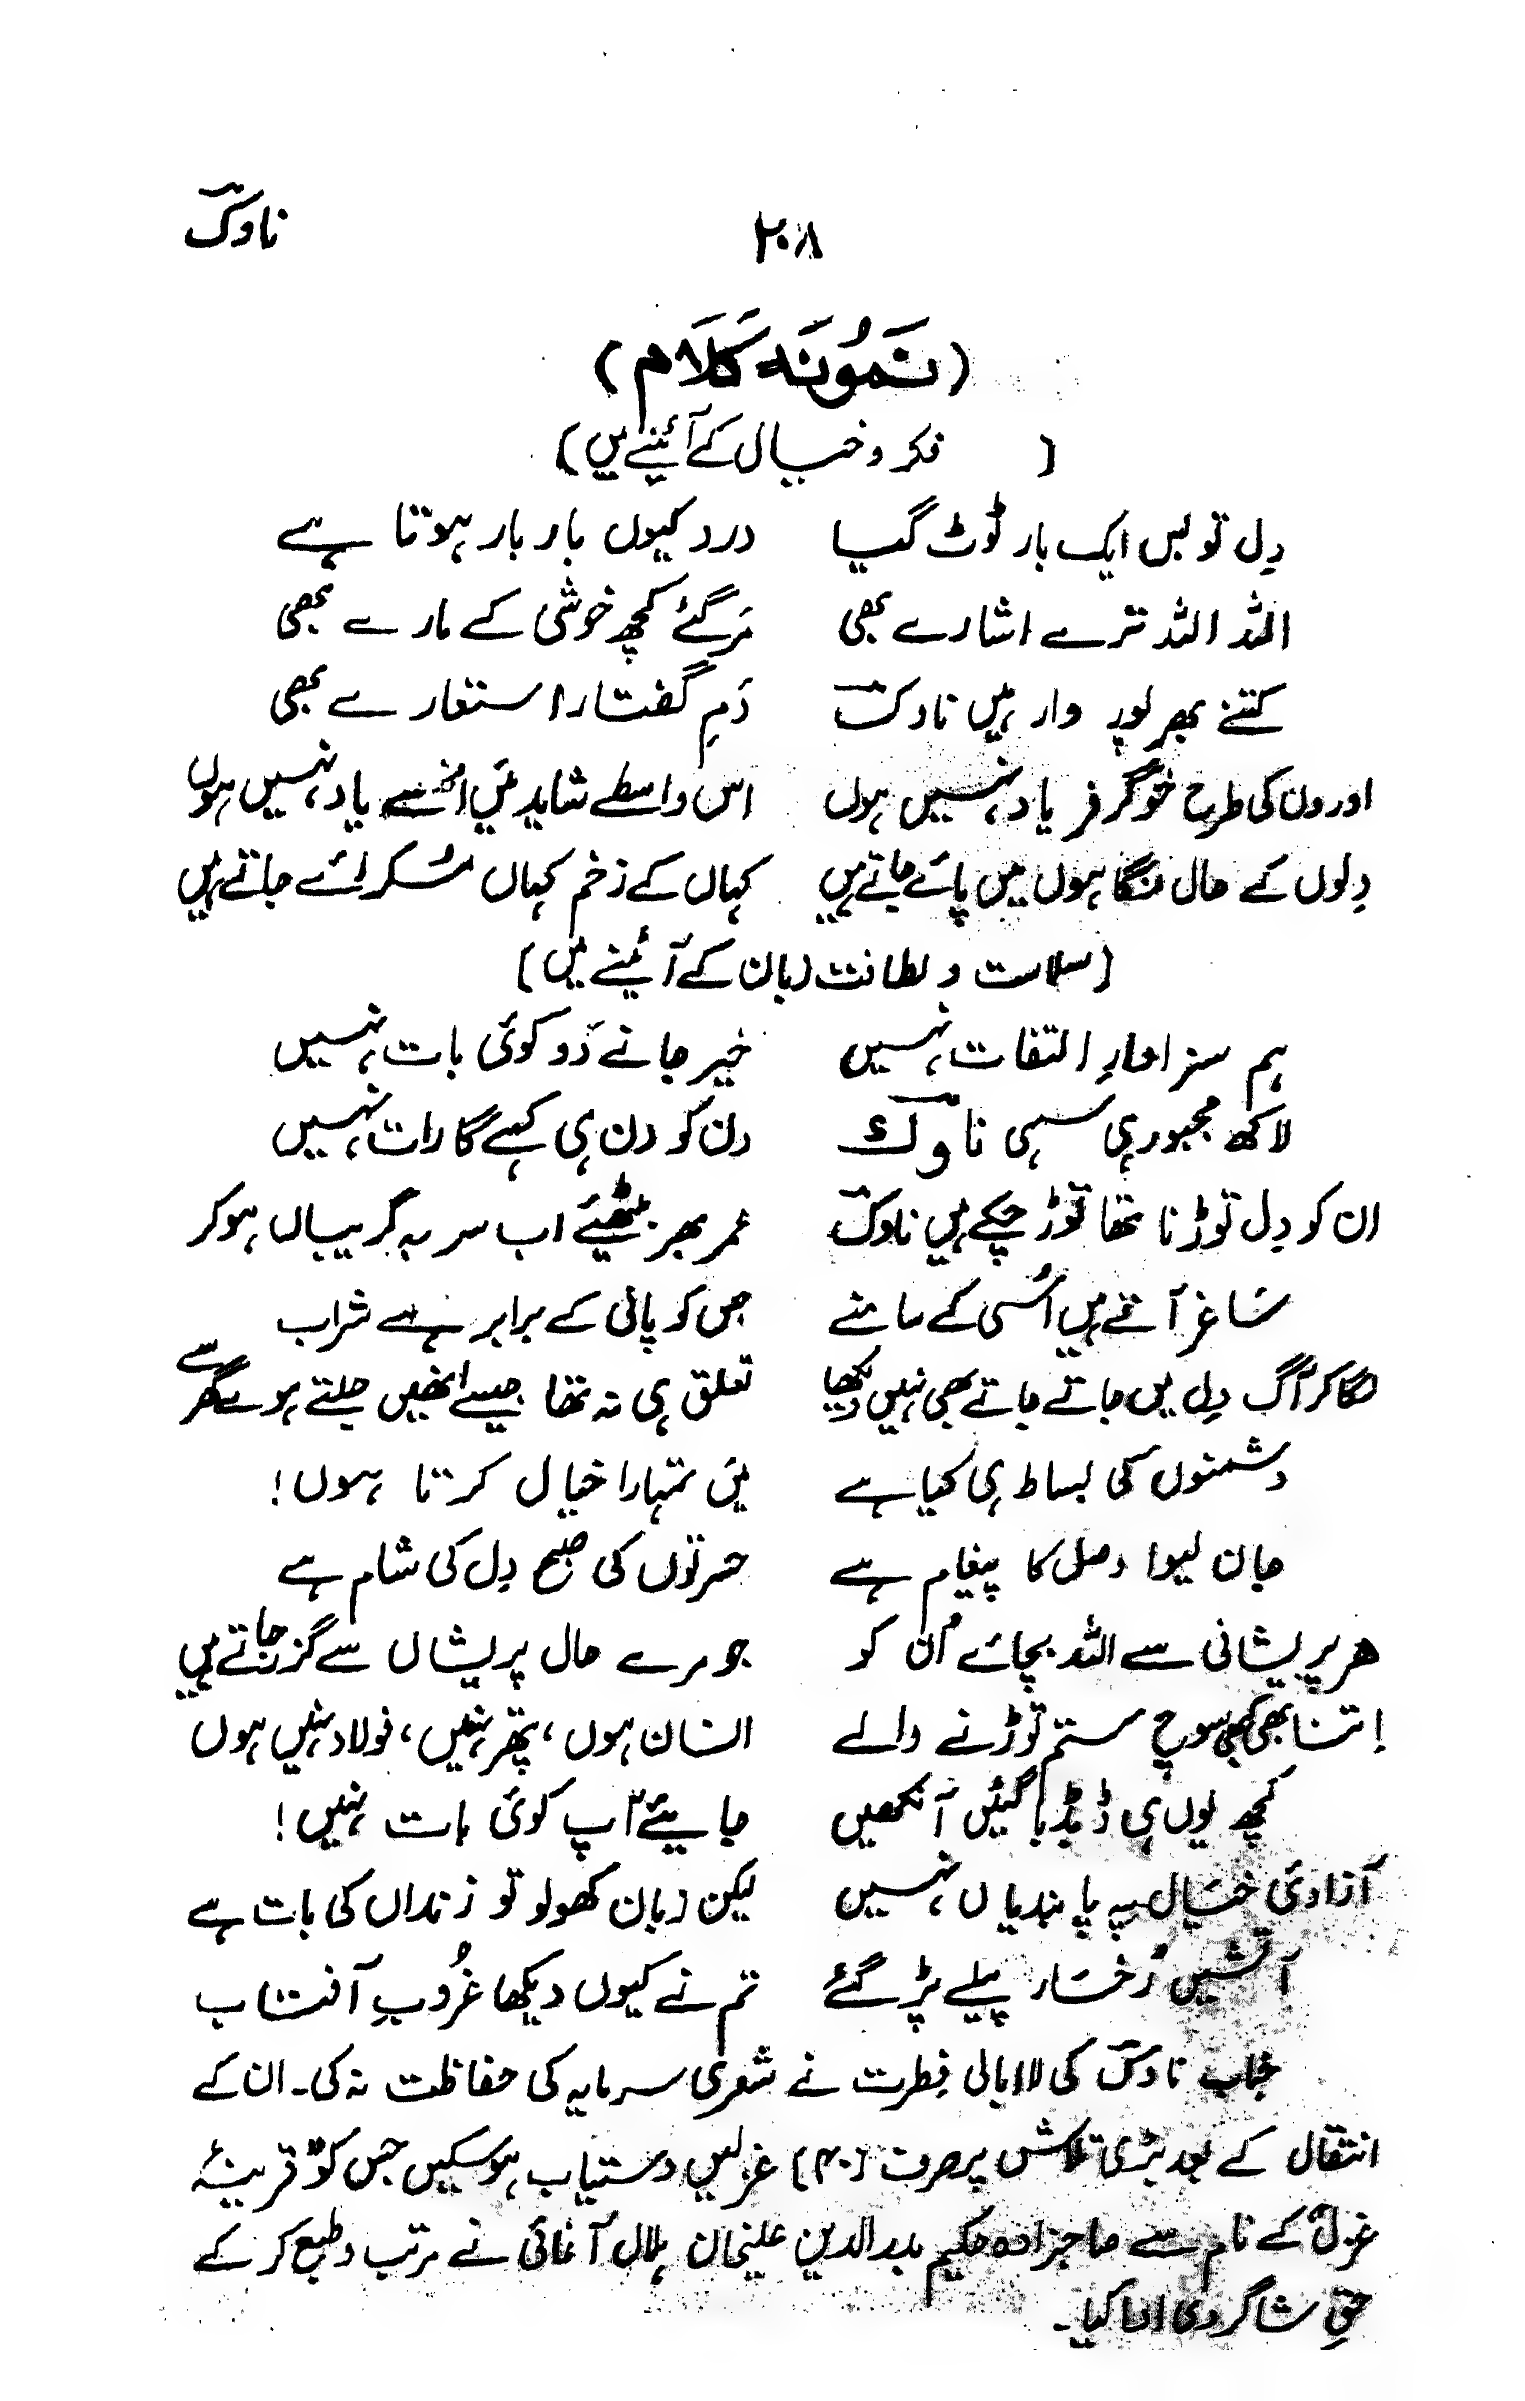 ناوکؔ
۲۰۸
(نَمُونَہ کَلَام)
(فکر و خیال کے آئینے میں)
دِل تو بس ایک بار ٹوٹ گیا درد کیوں بار بار ہوتا ہے
اللہ اللہ ترے اشارے بھی مَر گئے کچھ خوشی کے مارے بھی
کتنے بھرپور وار ہیں ناوکؔ دَمِ گفتار استعارے بھی
اوروں کی طرح خوگرِ فریاد نہیں ہوں اس واسطے شاید مَیں اُنھسے یاد نہیں ہوں
دِلوں کے حال نگاہوں میں پائے جاتے ہیں کہاں کے زخم کہاں مُسکرائے جاتے ہیں
(سلاست و لطافت زبان کے آئینے میں)
ہم سزاوارِ التفات نہیں خیر جانے دَو کوئی بات نہیں
لاکھ مجبور ہی سہی ناوکؔ دن کو دن ہی کہے گا رات نہیں
ان کو دِل توڑنا تھا توڑ چکے ہیں ناوکؔ عمر بھر بیٹھیئے اب سر بہ گریباں ہوکر
سَاغر آتے ہیں اُسی کے سامنے جس کو پانی کے برابر ہے شراب
لگا کر آگ دِل میں جاتے جاتے بھی نہیں دیکھا تعلق ہی نہ تھا جیسے انھیں جلتے ہوے گھر سے
دشمنوں کی بساط ہی کیا ہے مَیں تمہارا خیال کرتا ہوں!
جان لیوا وصل کا پیغام ہے حسرتوں کی صبح دِل کی شام ہے
ھر پریشانی سے اللہ بچائے اُن کو جو مرے حال پریشاں سے گزر جاتے ہیں
اِتنا بھی کبھی سوچ ستم توڑنے والے انسان ہوں، پتھر نہیں، فولاد نہیں ہوں
کچھ یوں ہی ڈبڈبا گئیں آنکھیں جایئے آپ کوئی بات نہیں!
آزادیٔ خیَال پہ پابندیاں نہیں لیکن زبان کھولو تو زنداں کی بات ہے
آتشیں رُخسَار پیلے پڑ گئے تم نے کیوں دیکھا غُروبِ آفتاب
جناب ناوکؔ کی لاابالی فِطرت نے شعری سرمایہ کی حفاظت نہ کی۔ ان کے
انتقال کے بعد بڑی تلاش پر صرف (۴۰) غزلیں دستیاب ہوسکیں جس کو "قرینۂ
غزل" کے نام سے صاحبزادہ حکیم بدرالدین علیخان ہلال آغائی نے مرتب و طبع کر کے
حقِ شاگردی ادا کیا۔